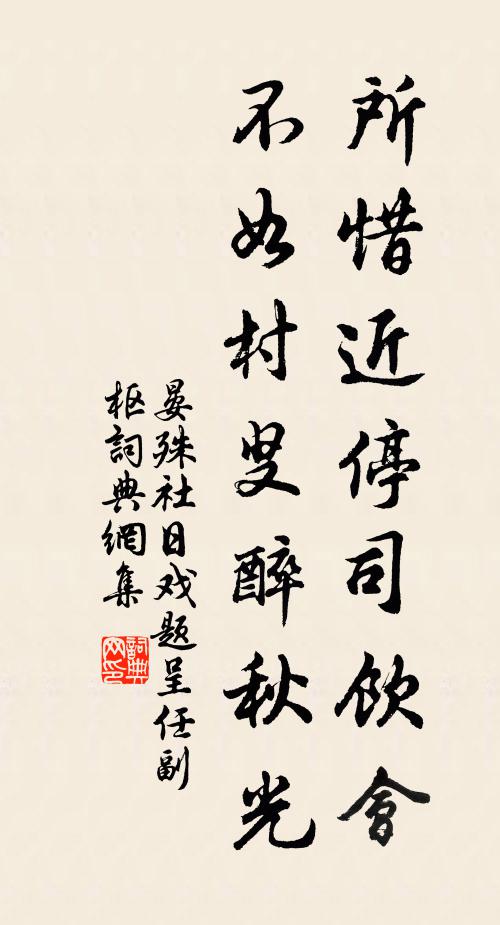 所惜近停司饮會
不如村叟醉秋光
晏殊社日戏题呈任副
枢詞典網集
詞典
网印